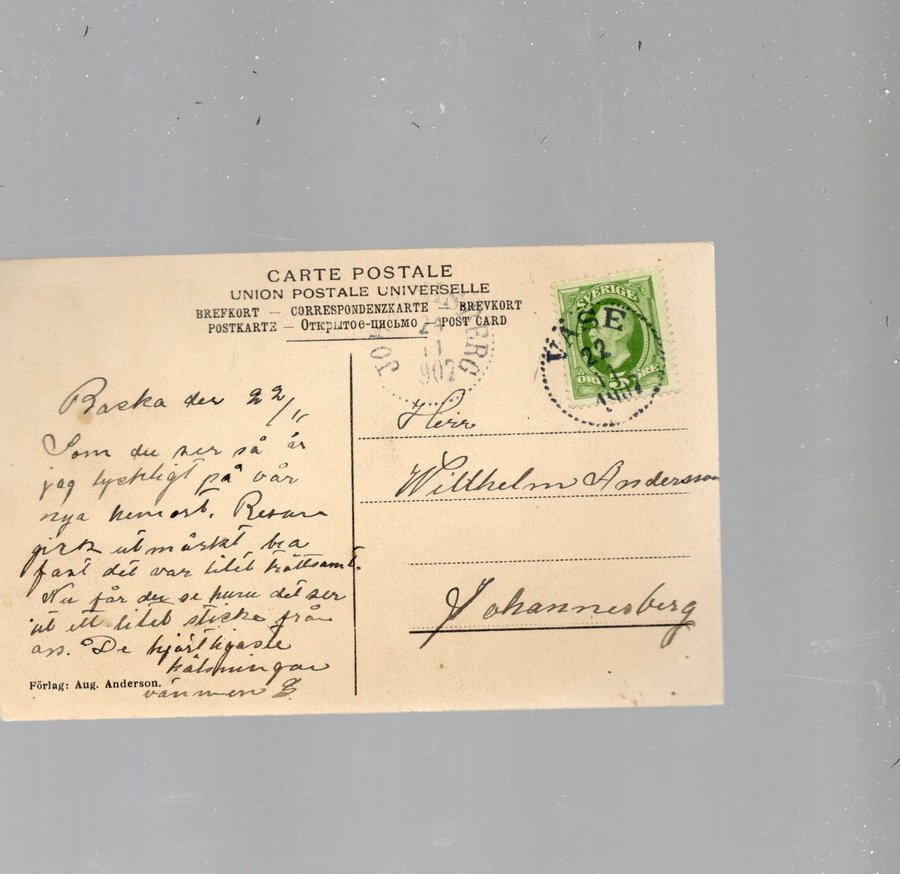 CARTE POSTALE
UNION POSTALE UNIVERSELLE
BREFKORT — CORRESPONDENZKARTE — BREVKORT
POSTKARTE — Открытое-письмо — POST CARD
JOHANNESBERG
24
11
907
SVERIGE
5
ÖRE
VÅSE
22
1907
Raska den 22/11
Som du ser så är
jag lyckligt på vår
nya hemort. Resan
gick utmärkt bra
fast det var litet tröttsamt.
Nu får du se huru det ser
ut ett litet stycke från
oss. De hjärtligaste
hälsningar
vännen
Herr
Willhelm Andersson
Johannesberg
Förlag: Aug. Anderson.